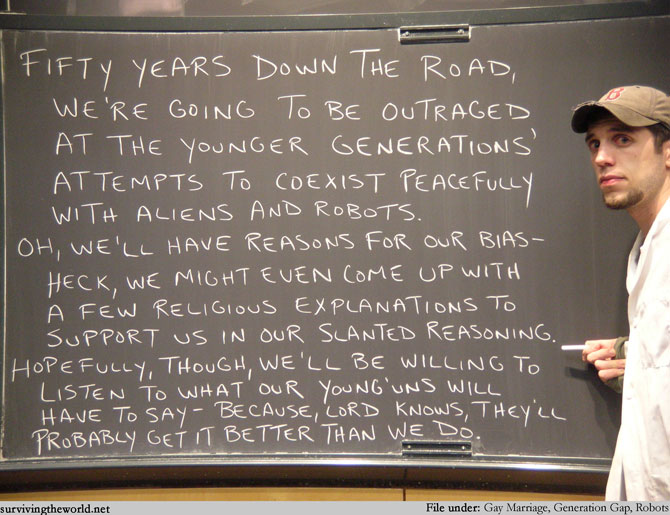 FIFTY YEARS DOWN THE ROAD,
WE'RE GOING TO BE OUTRAGED
AT THE YOUNGER GENERATIONS'
ATTEMPTS TO COEXIST PEACEFULLY
WITH ALIENS AND ROBOTS.
OH, WE'LL HAVE REASONS FOR OUR BIAS-
HECK, WE MIGHT EVEN COME UP WITH
A FEW RELIGIOUS EXPLANATIONS TO
SUPPORT US IN OUR SLANTED REASONING.
HOPEFULLY, THOUGH, WE'LL BE WILLING TO
LISTEN TO WHAT OUR YOUNG'UNS WILL
HAVE TO SAY - BECAUSE, LORD KNOWS, THEY'LL
PROBABLY GET IT BETTER THAN WE DO.
B
survivingtheworld.net
File under: Gay Marriage, Generation Gap, Robots